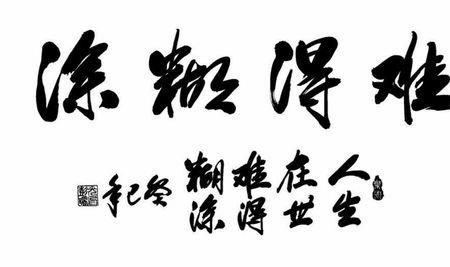 难得糊涂
人生
在世
难得
糊涂
癸巳年